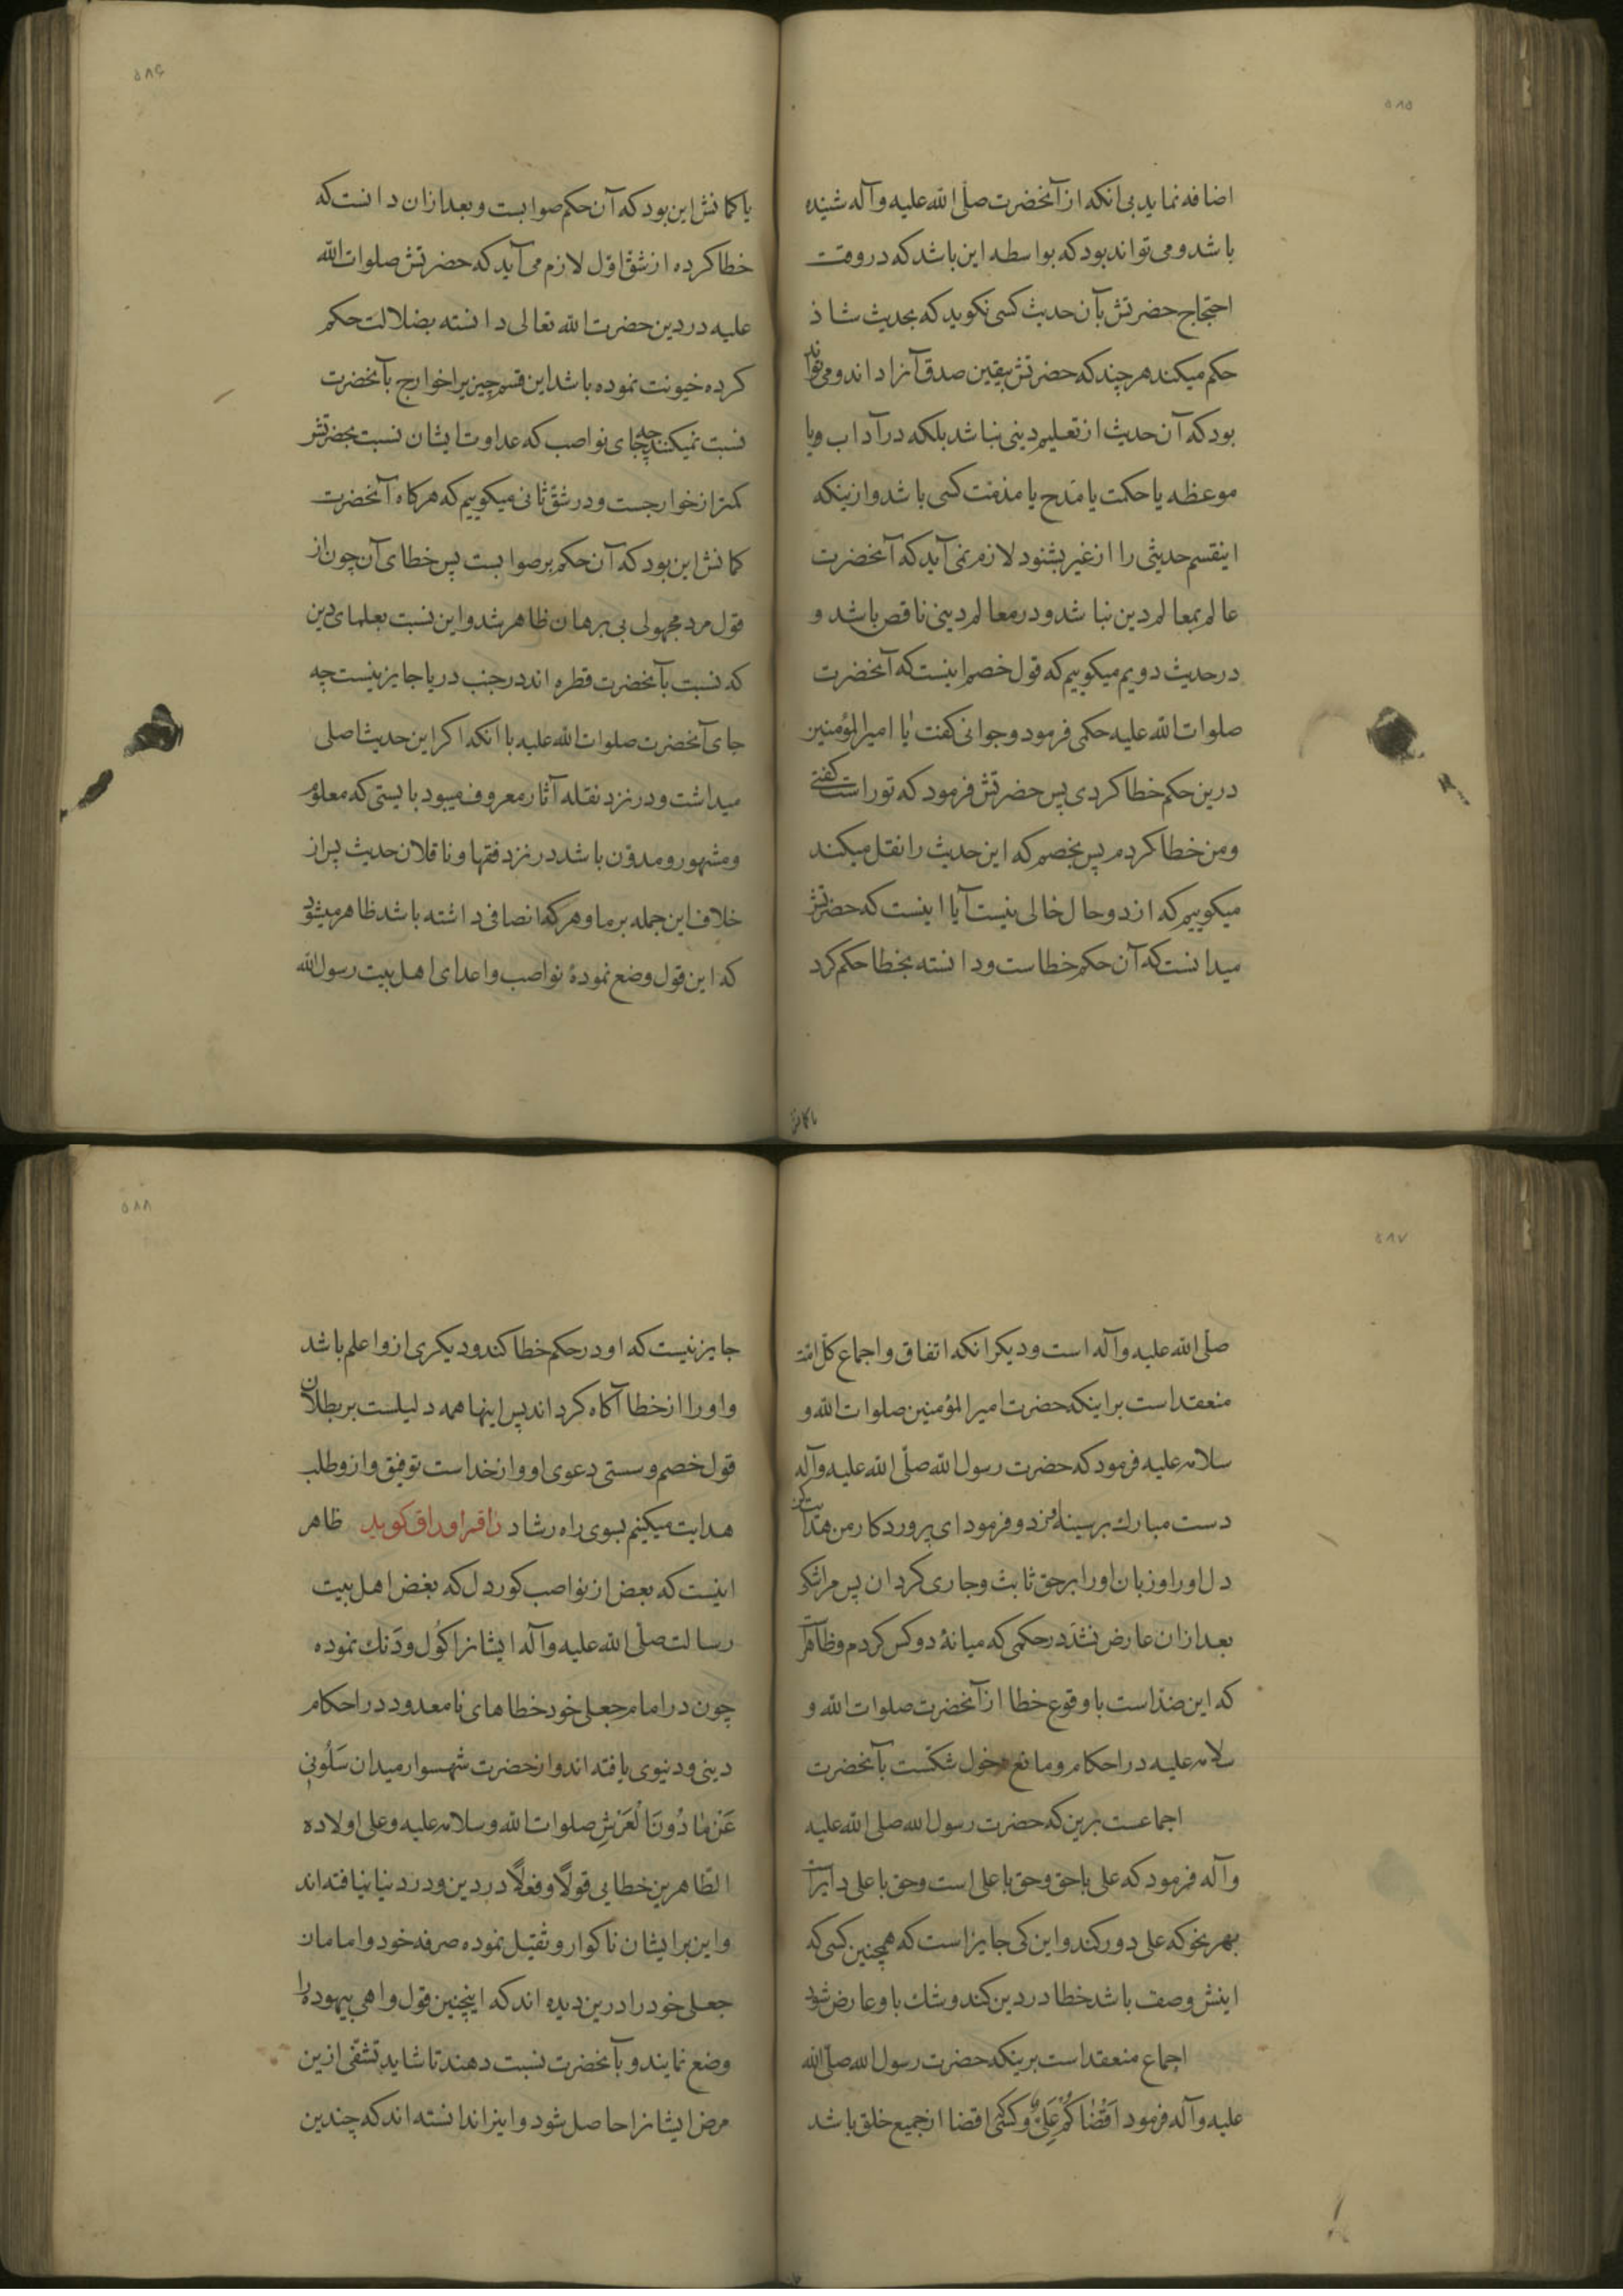 ۵۸۵
اضافه نماید بی انکه از آنحضرت صلّی الله علیه وآله شنیده
باشد و می تواند بود که بواسطه این باشد که در وقت
احتجاج حضرتش بآن حدیث کسی نکوید که بحدیث شاذ
حکم میکند هر چند که حضرتش بیقین صدق آنرا داند و می تواند
بود که آن حدیث از تعلیم دینی نباشد بلکه در آداب و یا
موعظه یا حکمت یا مَدح یا مذمت کسی باشد و ازینکه
اینقسم حدیثی را از غیر بشنود لازم نمی آید که آنحضرت
عالم بمعالم دین نباشد و در معالم دینی ناقص باشد و
در حدیث دویم میکوییم که قول خصم اینست که آنحضرت
صلوات الله علیه حکمی فرمود و جوانی کفت یا امیرالمؤمنین
درین حکم خطا کردی پس حضرتش فرمود که تو راست کفتی
و من خطا کردم پس بخصم که این حدیث را نقل میکند
میکوییم که از دو حال خالی نیست آیا اینست که حضرتش
میدانست که آن حکم خطاست و دانسته بخطا حکم کرد
یا کمانش
۵۸۶
یا کمانش این بود که آن حکم صوابست و بعد ازان دانست که
خطا کرده از شق اوّل لازم می آید که حضرتش صلوات الله
علیه در دین حضرت الله تعالی دانسته بضلالت حکم
کرده خیونت نموده باشد این قسم چیز یرا خوارج بآنحضرت
نسبت نمیکنند چه جای نواصب که عداوت ایشان نسبت بحضرتش
کمتر از خوارجست و در شقّ ثانی میکوییم که هر کاه آنحضرت
کمانش این بود که آن حکم بر صوابست پس خطای آن چون از
قول مرد مجهولی بی برهان ظاهر شد و این نسبت بعلمای دین
که نسبت بآنحضرت قطره اند در جنب دریا جایز نیست چه
جای آنحضرت صلوات الله علیه با انکه اکر این حدیث اصلی
میداشت و در نزد نقله آثار معروف میبود بایستی که معلوم
و مشهور و مدوّن باشد در نزد فقها و ناقلان حدیث پس از
خلاف این جمله بر ما و هر که انصافی داشته باشد ظاهر میشود
که این قول وضع نمودهٔ نواصب و اعدای اهل بیت رسول الله
۵۸۷
صلّی الله علیه وآله است و دیکر انکه اتفاق و اجماع کلّ امّت
منعقد است بر اینکه حضرت امیرالمؤمنین صلوات الله و
سلامه علیه فرمود که حضرت رسول الله صلّی الله علیه وآله
دست مبارک بر سینهٔ من زد و فرمود ای پروردکار من هدایت کن
دل او را و زبان او را بر حق ثابت و جاری کردان پس مرا شکی
بعد ازان عارض نشد در حکمی که میانهٔ دو کس کردم و ظاهرست
که این ضدّ است با وقوع خطا از آنحضرت صلوات الله و
سلامه علیه در احکام و مانع دخول شکست بآنحضرت
اجماعست برین که حضرت رسول الله صلی الله علیه
وآله فرمود که علی با حق و حق با علی است و حق با علی دایرست
بهر نحو که علی دور کند و این کی جایز است که همچنین کسی که
اینش وصف باشد خطا در دین کند و شک باو عارض شود
اجماع منعقد است برینکه حضرت رسول الله صلّی الله
علیه وآله فرمود اَقْضاکُم عَلِیٌّ و کسی که اقضا از جمیع خلق باشد
۵۸۸
جایز نیست که او در حکم خطا کند و دیکری ازو اعلم باشد
و او را از خطا آکاه کرداند پس اینها همه دلیلست بر بطلان
قول خصم و سستی دعوی او و از خداست توفیق و ازو طلب
هدایت میکنیم بسوی راه رشاد راقم اوراق کوید ظاهر
اینست که بعض از نواصب کور دل که بغض اهل بیت
رسالت صلّی الله علیه وآله ایشانرا کُول و دَنک نموده
چون در امام جعلی خود خطاهای نامعدود در احکام
دینی و دنیوی یافته اند و از حضرت شهسوار میدان سَلُونی
عَنْ مٰا دُونَ الْعَرْشِ صلوات الله و سلامه علیه وعلی اولاده
الطّاهرین خطایی قولاً و فعلاً در دین و در دنیا نیافته اند
و این بر ایشان ناکوار و ثقیل نموده صرفه خود و امامان
جعلی خود را درین دیده اند که اینچنین قول واهی بیهوده را
وضع نمایند و بآنحضرت نسبت دهند تا شاید تشفّی ازین
مرض ایشانرا حاصل شود و اینرا ندانسته اند که چندین